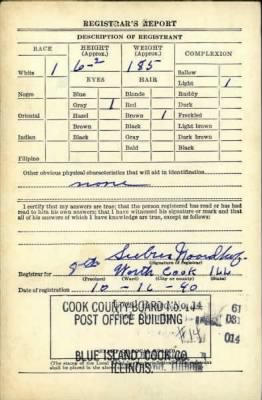 REGISTRAR'S REPORT
DESCRIPTION OF REGISTRANT
RACE HEIGHT (Approx.) WEIGHT (Approx.) COMPLEXION
6-2 185
Sallow
White 1 EYES HAIR Light 1
Negro Blue Blonde Ruddy
Gray 1 Red Dark
Oriental Hazel Brown 1 Freckled
Brown Black Light brown
Indian Black Gray Dark brown
Bald Black
Filipino
Other obvious physical characteristics that will aid in identification
none
I certify that my answers are true; that the person registered has read or has had
read to him his own answers; that I have witnessed his signature or mark and that
all of his answers of which I have knowledge are true, except as follows:
(Signature of registrar)
Registrar for 8th North Cook Ill
(Precinct) (Ward) (City or county) (State)
Date of registration 10-16-40
COOK COUNTY BOARD NO. 14
POST OFFICE BUILDING
61
031
014
BLUE ISLAND, COOK CO.
ILLINOIS.